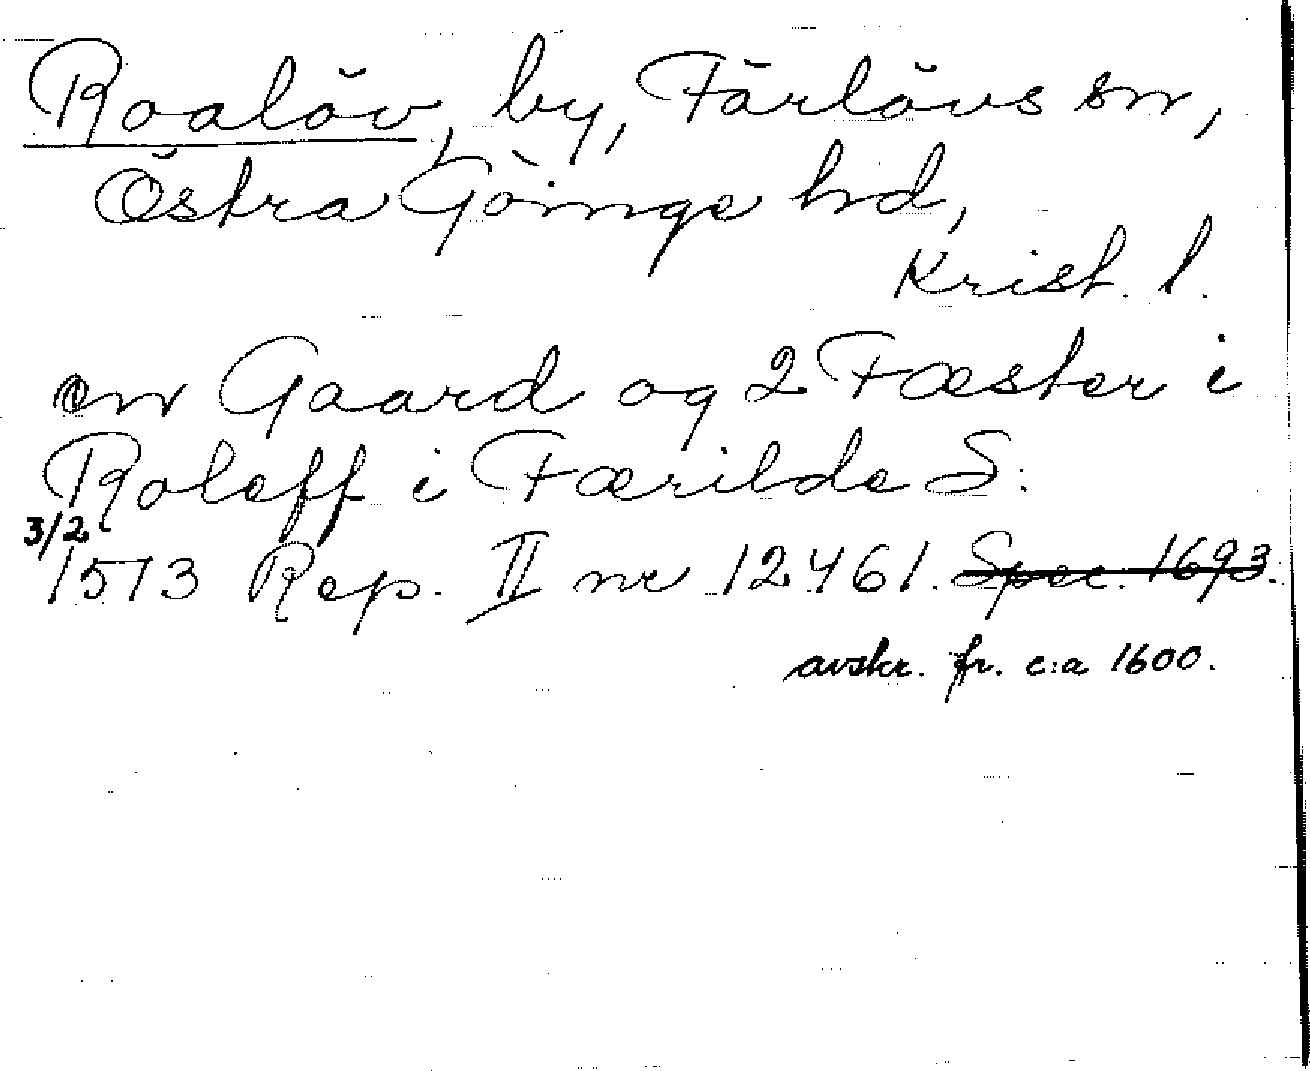 Roalöv, by, Färlövs sn,
Östra Göinge hd,
Krist. l.
en Gaard og 2 Fæster i
Roleff i Færilde S:
3/2
1513 Rep. II nr 12461. ~~Spec. 1693.~~
avskr. fr. c:a 1600.